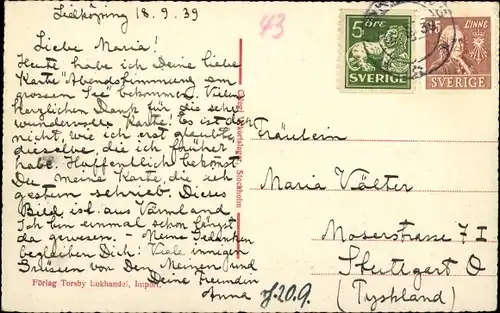 Lidköping 18.9.39
Liebe Maria!
Heute habe ich Deine liebe
Karte "Abendstimmung am
grossen See" bekommen. Vielen
herzlichen Dank für die sehr
wundervolle Karte! Es ist doch
nicht, wie ich erst glaubte,
dieselbe, die ich früher
habe. Hoffentlich bekomst
Du meine Karte, die ich
gestern schrieb. Dieses
Bild ist aus Värmland
Ich bin einmal schon längst
da gewesen. Meine Gedanken
begleiten Dich! Viele innige
Grüssen von Den Meinen und
Deine Freundin
Anna
Förlag Torsby Bokhandel, Import.
Stockholm
43
5 ÖRE 5
SVERIGE
15 LINNÉ
SVERIGE
Fräulein
Maria Välter
Moserstrasse 7 I
Stuttgart O
(Tyskland)
f.20.9.